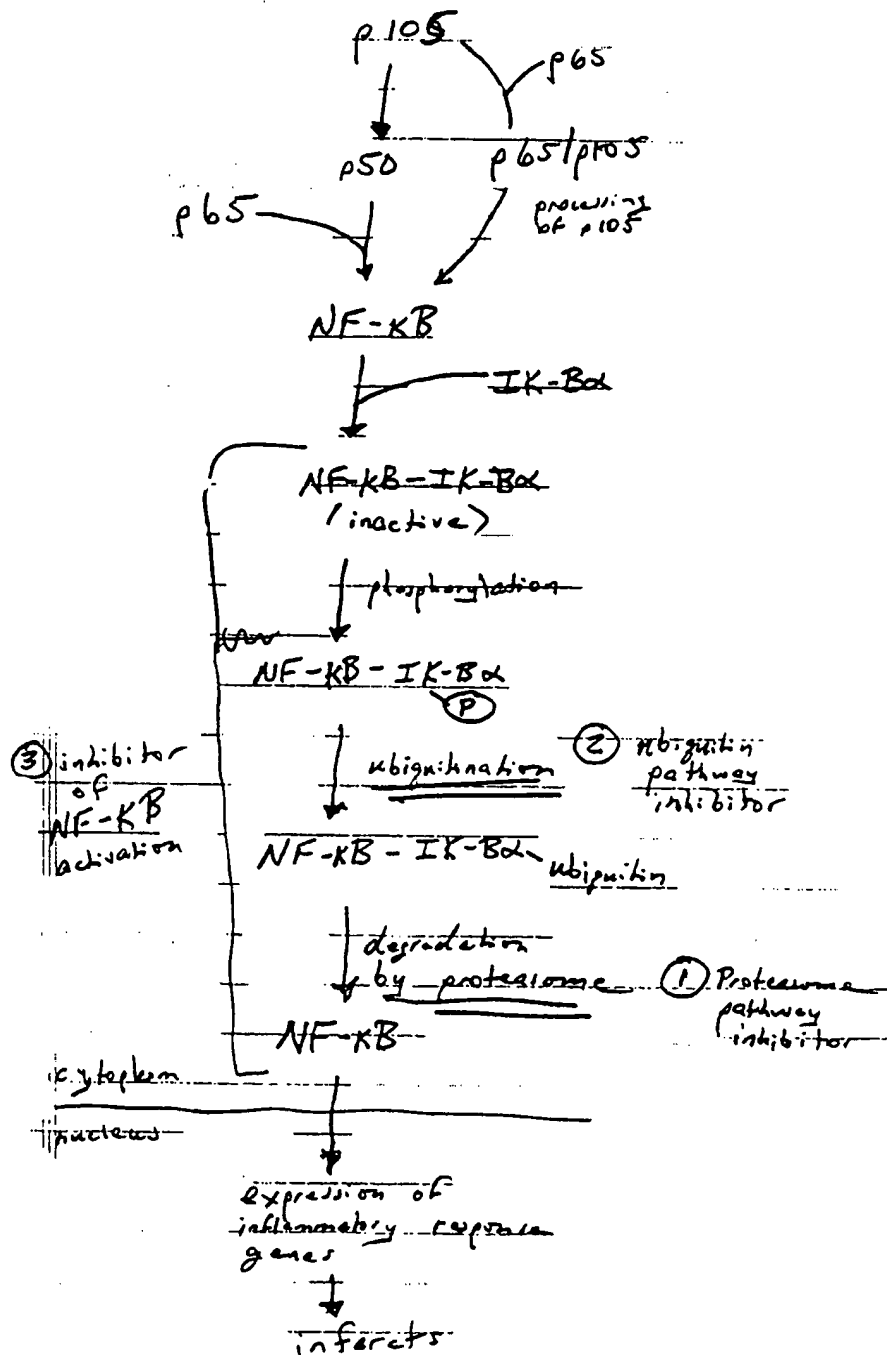 p105
p65
p50
p65/p105
p65
processing
of p105
NF-κB
IK-Bα
NF-κB-IK-Bα
(inactive)
phosphorylation
NF-κB-IK-Bα
P
③ inhibitor
of
NF-κB
activation
ubiquitination
② ubiquitin
pathway
inhibitor
NF-κB-IK-Bα-ubiquitin
degradation
by proteasome
① Proteasome
pathway
inhibitor
NF-κB
cytoplasm
nucleus
expression of
inflammatory response
genes
infarcts